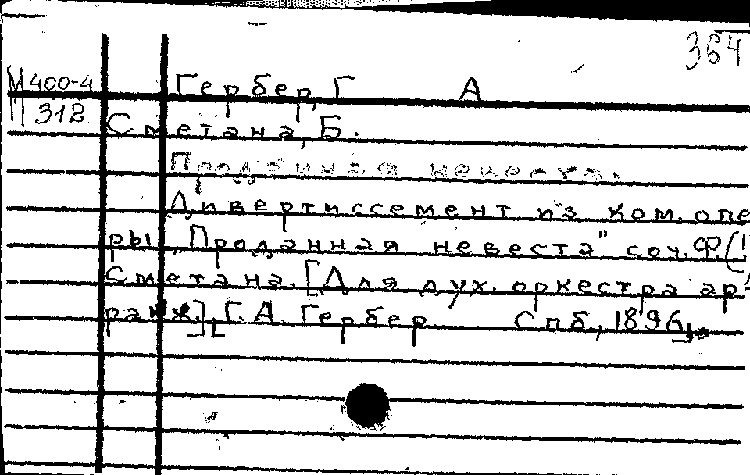 364
М400-4 Гербер, Г А
312 Сметана, Б.
Проданная невеста.
Дивертиссемент из ком. опе-
ры „Проданная невеста" соч. Ф.(!)
Сметана. [Для дух. оркестра ар-
ранж.], Г. А. Гербер Спб, 1896.